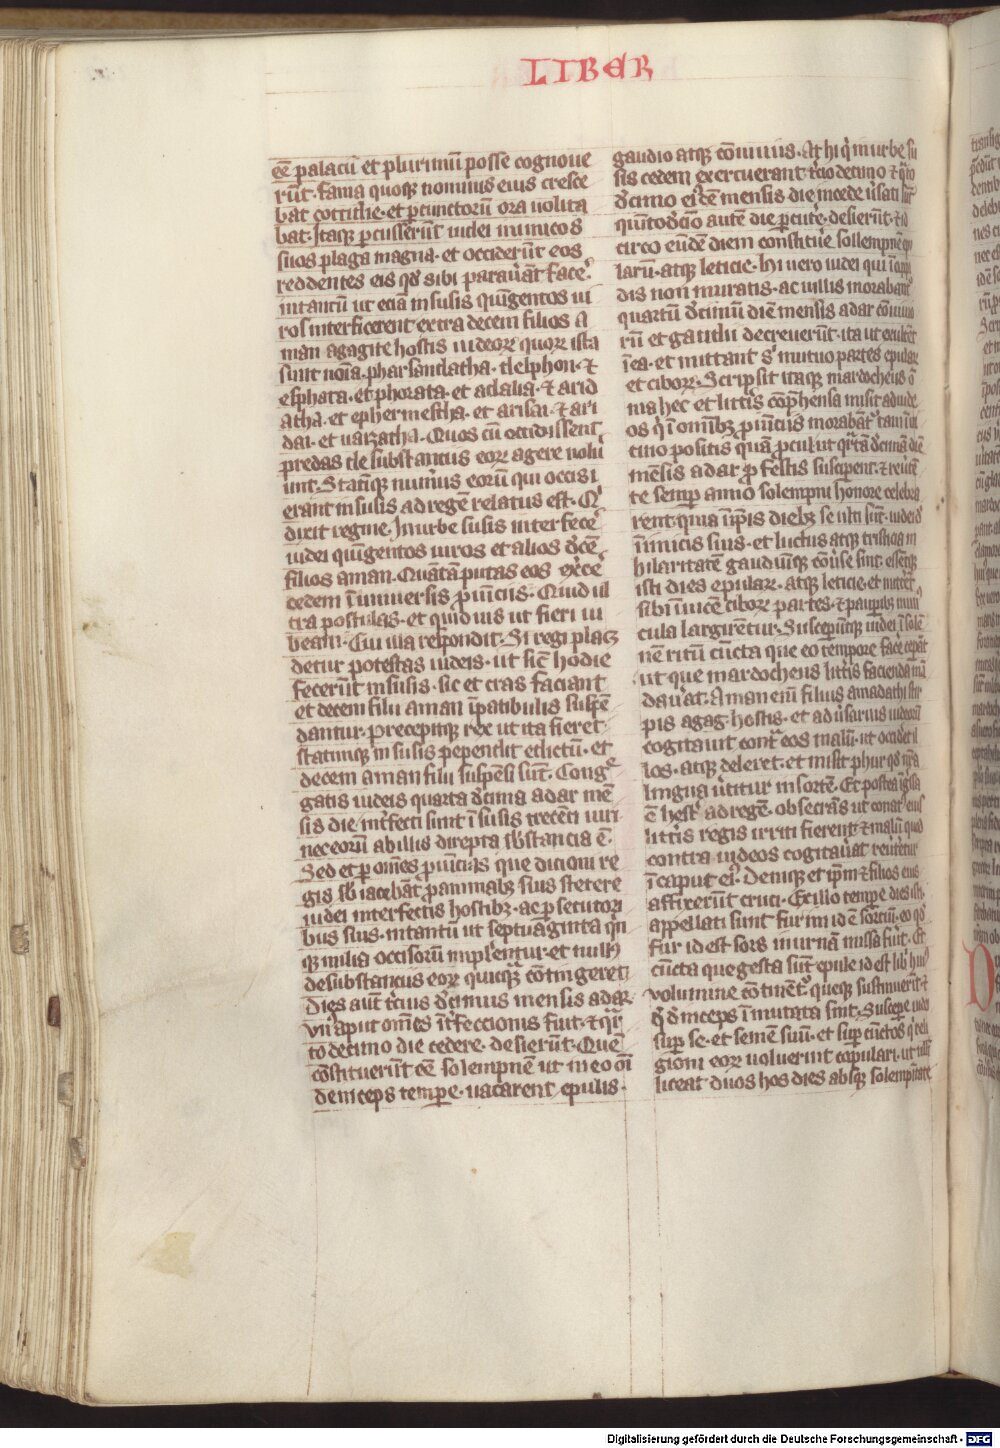 LIBER
eē palacii et plurimū posse cognoue
rūt. fama quoqȝ nominis eius cresce
bat cottidie. et p cunctorū ora uolita
bat. Itaqȝ pcusserūt iudei inimicos
suos plaga magna. et occiderūt eos
reddentes eis qd sibi parauāt face.
intantū ut eciā in susis quīgentos ui
ros interficerent extra decem filios a
man agagite hostis iudeorꝝ quorꝝ ista
sunt noīa. pharsandatha. delphon. et
esphata. et phorata. et adalia. et arid
atha. et ephermestha. et arisai. et ari
dai. et uaizatha. Quos cū occidissent
predas de substanciis eorꝝ agere nolu
unt. Statīqȝ numerus eorū qui occisi
erant in susis ad regē relatus est. Qͥ
dixit regine. In urbe susis interfecē
iudei quīgentos uiros et alios decē
filios aman. Quātā putas eos exercē
cedem ī uniuersis prouīciis. Quid ul
tra postulas. et quid uis ut fieri iu
beam. Cui illa respondit. Si regi placȝ
detur potestas iudeis. ut sic hodie
fecerūt in susis. sic et cras faciant
et decem filii aman ī patibulis suspē
dantur. precepitqȝ rex ut ita fieret.
statimqȝ in susis pependit edictū. et
decem aman filii suspēsi sūt. Congͤ
gatis iudeis quarta decima adar mē
sis die. īterfecti sunt ī susis trecēti uiri.
nec eorū ab illis direpta sbstancia ē.
Sed et p omēs prouīcias que dicioni re
gis sb iacebāt. pro animabȝ suis stetere
iudei interfectis hostibȝ. ac psecutori
bus suis. intantū ut septuaginta quī
qȝ milia occisorū implerētur. et nullꝰ
de substanciis eorꝝ quicqͣ contingeret.
Dies autē tercius decimus mensis adar
unꝰ aput omēs īterfeccionis fuit. et qͣr
to decimo die cedere desierūt. Quē
cōstituerūt eē solempnē ut in eo oī
deinceps tempore uacarent epulis.
gaudio atqȝ conuiuiis. At hi qͥ in urbe su
sis cedem exercuerant. tercio decimo et qͣrto
decimo eiusdē mensis die in cede uersati sūt
quītodecimo autē die pcutere desierūt. et id
circo eūdē diem constituere sollempnē epu
larū. atqȝ leticie. Hi uero iudei qui ī oppi
dis non muratis. ac uillis morabantͬ
quartū decimū diē mensis adar conuiuio
rū et gaudii decreuerūt. ita ut exultēt
ī ea. et mittant sͥ mutuo partes epularꝝ
et ciborꝝ. Scripsit itaqȝ mardocheus oī
ma hec et litteris cōphensa misit ad iude
os qͥ ī omībȝ prouīciis morabātͬ. tam ī ui
cino positis quā procul. ut qͣrtā decimā diē
mēsis adar pro festis susciperent. et reuertē
te semp anno solempni honore celebra
rent. quia ī ipsis diebȝ se ulti sūt iudei de
īimicis suis. et luctus atqȝ tristicia in
hilaritatē gaudiūqȝ conuerse sint. essētqȝ
isti dies epularꝝ. atqȝ leticie. et mitterēt
sibi īuicē ciborꝝ partes. et pauperibȝ munus
cula largirētur. Susceperūtqȝ iudei ī solē
nē ritū cūcta que eo tempore facere ceperāt
ut que mardocheus litteris facienda mā
dauerat. Aman enī filius amadathi stir
pis agag. hostis. et aduersarius iudeorū
cogitauit contͣ eos malū. ut occideret il
los. atqȝ deleret. et misit phur qd nostra
lingua uertitur in sortē. Et postea īgressa
ē hester ad regē. obsecrās ut conatꝰ eius
litteris regis irriti fierent. et malū quod
contra iudeos cogitauerat reuerteretur
ī caput eiꝰ. Deniqȝ et ipm et filios eius
affixerūt cruci. Ex illo tempore dies isti
appellati sunt furim id ē sortiū. eo qd
fur id est sors in urnā missa fuit. Et
cūcta que gesta sūt epule id est libri huiꝰ
uolumine cōtinētͬ. queqȝ sustinuerūt et
qͥ deinceps īmutata sint. Suscepere iudei
sup se. et semē suū. et sup cūctos qͥ reli
gioni eorꝝ uoluerint copulari. ut nulli
liceat duos hos dies absqȝ solempnitate
Digitalisierung gefördert durch die Deutsche Forschungsgemeinschaft - DFG